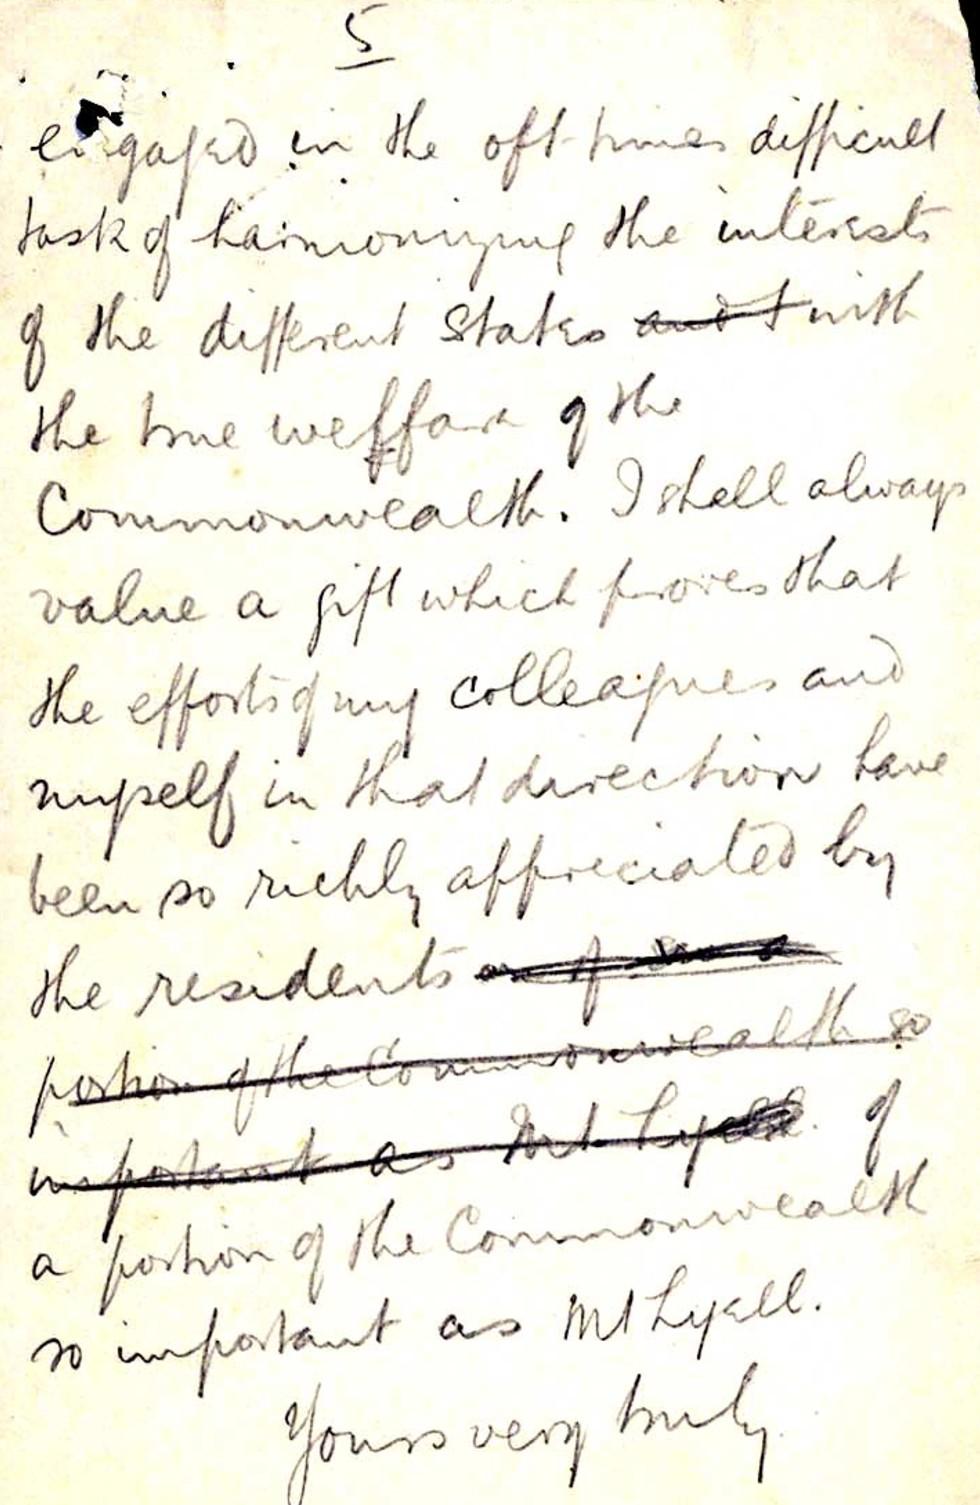 5
engaged in the oft-times difficult
task of harmonizing the interests
of the different States and t with
the true welfare of the
Commonwealth. I shall always
value a gift which proves that
the efforts of my colleagues and
myself in that direction have
been so richly appreciated by
the residents
portion of the Commonwealth so
important as Mt Lyell. of
a portion of the Commonwealth
so important as Mt Lyell.
Yours very truly